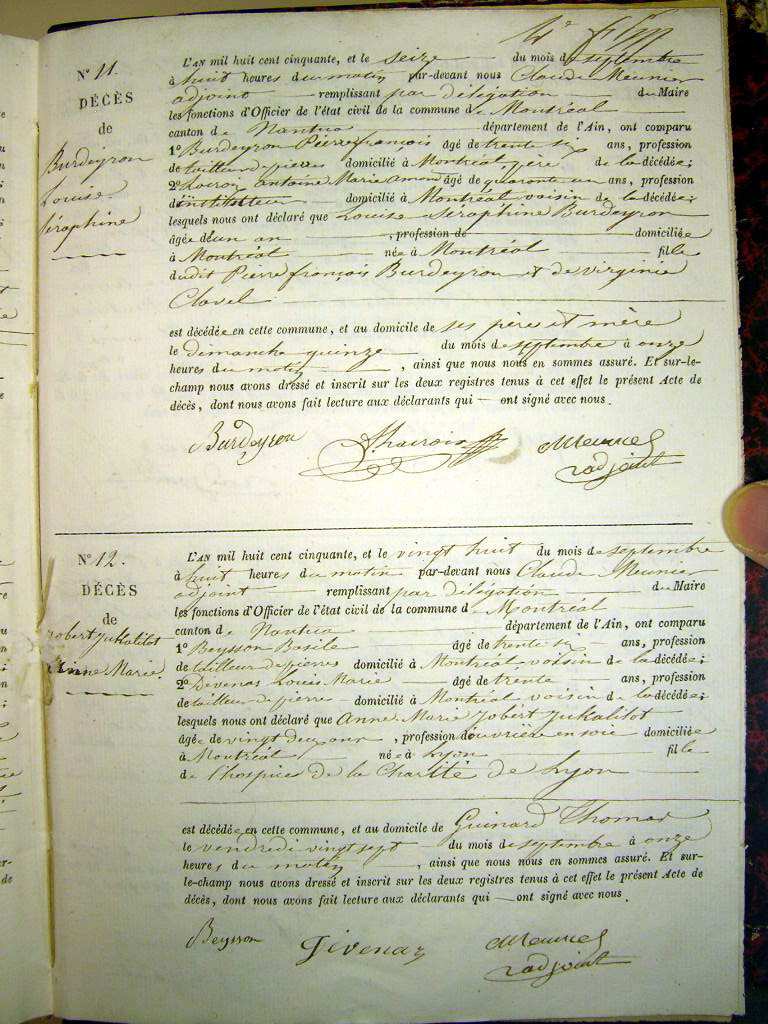 N° 11.
DÉCÈS
de
Burdeyron
Louise
Séraphine
L'AN mil huit cent cinquante, et le seize du mois de septembre
à huit heures du matin par-devant nous Claude Meunier
adjoint remplissant par délégation du Maire
les fonctions d'Officier de l'état civil de la commune de Montréal
canton de Nantua département de l'Ain, ont comparu
1° Burdeyron Pierre françois âgé de trente six ans, profession
de tailleur de pierres domicilié à Montréal, père de la décédée;
2° antoine Marie âgé de quarante un ans, profession
d'instituteur domicilié à Montréal voisin de la décédée;
lesquels nous ont déclaré que Louise Séraphine Burdeyron
âgée d'un an, profession de domiciliée
à Montréal née à Montréal fille
dudit Pierre françois Burdeyron et de virginie
Clavel
est décédée en cette commune, et au domicile de ses père et mère
le dimanche quinze du mois de septembre à onze
heures du matin, ainsi que nous nous en sommes assuré. Et sur-le-
champ nous avons dressé et inscrit sur les deux registres tenus à cet effet le présent Acte de
décès, dont nous avons fait lecture aux déclarants qui ont signé avec nous.
Burdeyron
Meunier
adjoint
N° 12.
DÉCÈS
de
Jobert Jukalitot
Anne Marie
L'AN mil huit cent cinquante, et le vingt huit du mois de septembre
à huit heures du matin par-devant nous Claude Meunier
adjoint remplissant par délégation du Maire
les fonctions d'Officier de l'état civil de la commune de Montréal
canton de Nantua département de l'Ain, ont comparu
1° Beysson Basile âgé de trente six ans, profession
de tailleur de pierres domicilié à Montréal voisin de la décédée;
2° Devenas Louis Marie âgé de trente ans, profession
de tailleur de pierre domicilié à Montréal voisin de la décédée;
lesquels nous ont déclaré que Anne Marie Jobert Jukalitot
âgée de vingt deux ans, profession d'ouvrière en soie domiciliée
à Montréal née à Lyon fille
de l'hospice de la Charité de Lyon
est décédée en cette commune, et au domicile de Guinard Thomas
le vendredi vingt sept du mois de septembre à onze
heures du matin, ainsi que nous nous en sommes assuré. Et sur-
le-champ nous avons dressé et inscrit sur les deux registres tenus à cet effet le présent Acte de
décès, dont nous avons fait lecture aux déclarants qui ont signé avec nous.
Beysson
Meunier
adjoint